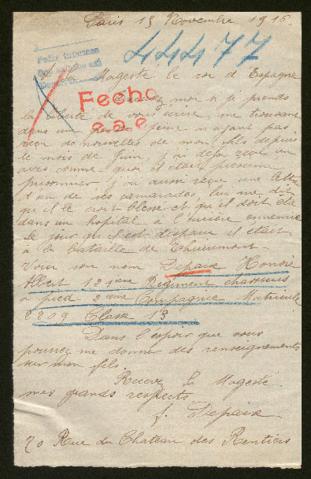 Paris 13 Novembre 1916
44477
Magesté le roi d'Espagne
Fecho
moi si je prends
la liberté de vous écrire me trouvant
dans une peine n'ayant pas
de nouvelles de mon fils depuis
le mois de Juin j'ai
avis comme quoi il était présumé
prisonnier j'ai aussi reçu une lettre
d'un de ses camarades lui me dit
qu'il le croit blessé et qu'il doit être
dans un hopital à
le jour qu'il est disparu il était
à la bataille de Thiaumont
Voici son nom Depaix Honoré
Albert Régiment chasseurs
à pied 2 eme Compagnie Matricule
8209 Classe 13
Dans l'espoir que vous
pourrez me donner des renseignements
sur mon fils.
Recevez Magesté
mes grands respects
Depaix
70 Rue du Chateau des Rentiers